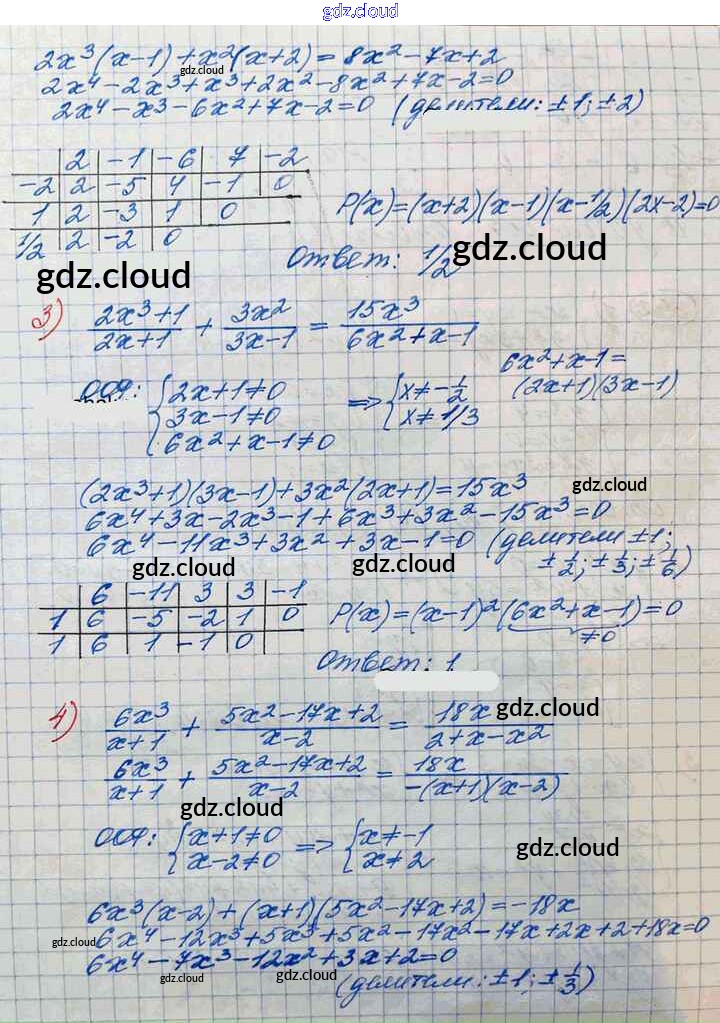 gdz.cloud
2x³(x-1)+x²(x+2)=8x²-7x+2
gdz.cloud
2x⁴-2x³+x³+2x²-8x²+7x-2=0
2x⁴-x³-6x²+7x-2=0 (делители: ±1; ±2)
2 -1 -6 7 -2
-2 2 -5 4 -1 0
1 2 -3 1 0
1/2 2 -2 0
P(x)=(x+2)(x-1)(x-1/2)(2x-2)=0
gdz.cloud
Ответ: 1/2
gdz.cloud
3) (2x³+1)/(2x+1) + 3x²/(3x-1) = 15x³/(6x²+x-1)
6x²+x-1=
(2x+1)(3x-1)
ООУ: {2x+1≠0 ; 3x-1≠0 ; 6x²+x-1≠0 => {x≠-1/2 ; x≠1/3
(2x³+1)(3x-1)+3x²(2x+1)=15x³
gdz.cloud
6x⁴+3x-2x³-1+6x³+3x²-15x³=0
6x⁴-11x³+3x²+3x-1=0 (делители ±1;
±1/2; ±1/3; ±1/6)
gdz.cloud gdz.cloud
6 -11 3 3 -1
1 6 -5 -2 1 0
1 6 1 -1 0
P(x)=(x-1)²(6x²+x-1)=0
≠0
Ответ: 1
4) 6x³/(x+1) + (5x²-17x+2)/(x-2) = 18x/(2+x-x²)
gdz.cloud
6x³/(x+1) + (5x²-17x+2)/(x-2) = 18x/(-(x+1)(x-2))
gdz.cloud
ООУ: {x+1≠0 ; x-2≠0 => {x≠-1 ; x≠2
gdz.cloud
6x³(x-2)+(x+1)(5x²-17x+2)=-18x
gdz.cloud
6x⁴-12x³+5x³+5x²-17x²-17x+2x+2+18x=0
6x⁴-7x³-12x²+3x+2=0
gdz.cloud gdz.cloud
(делители: ±1; ±1/3)